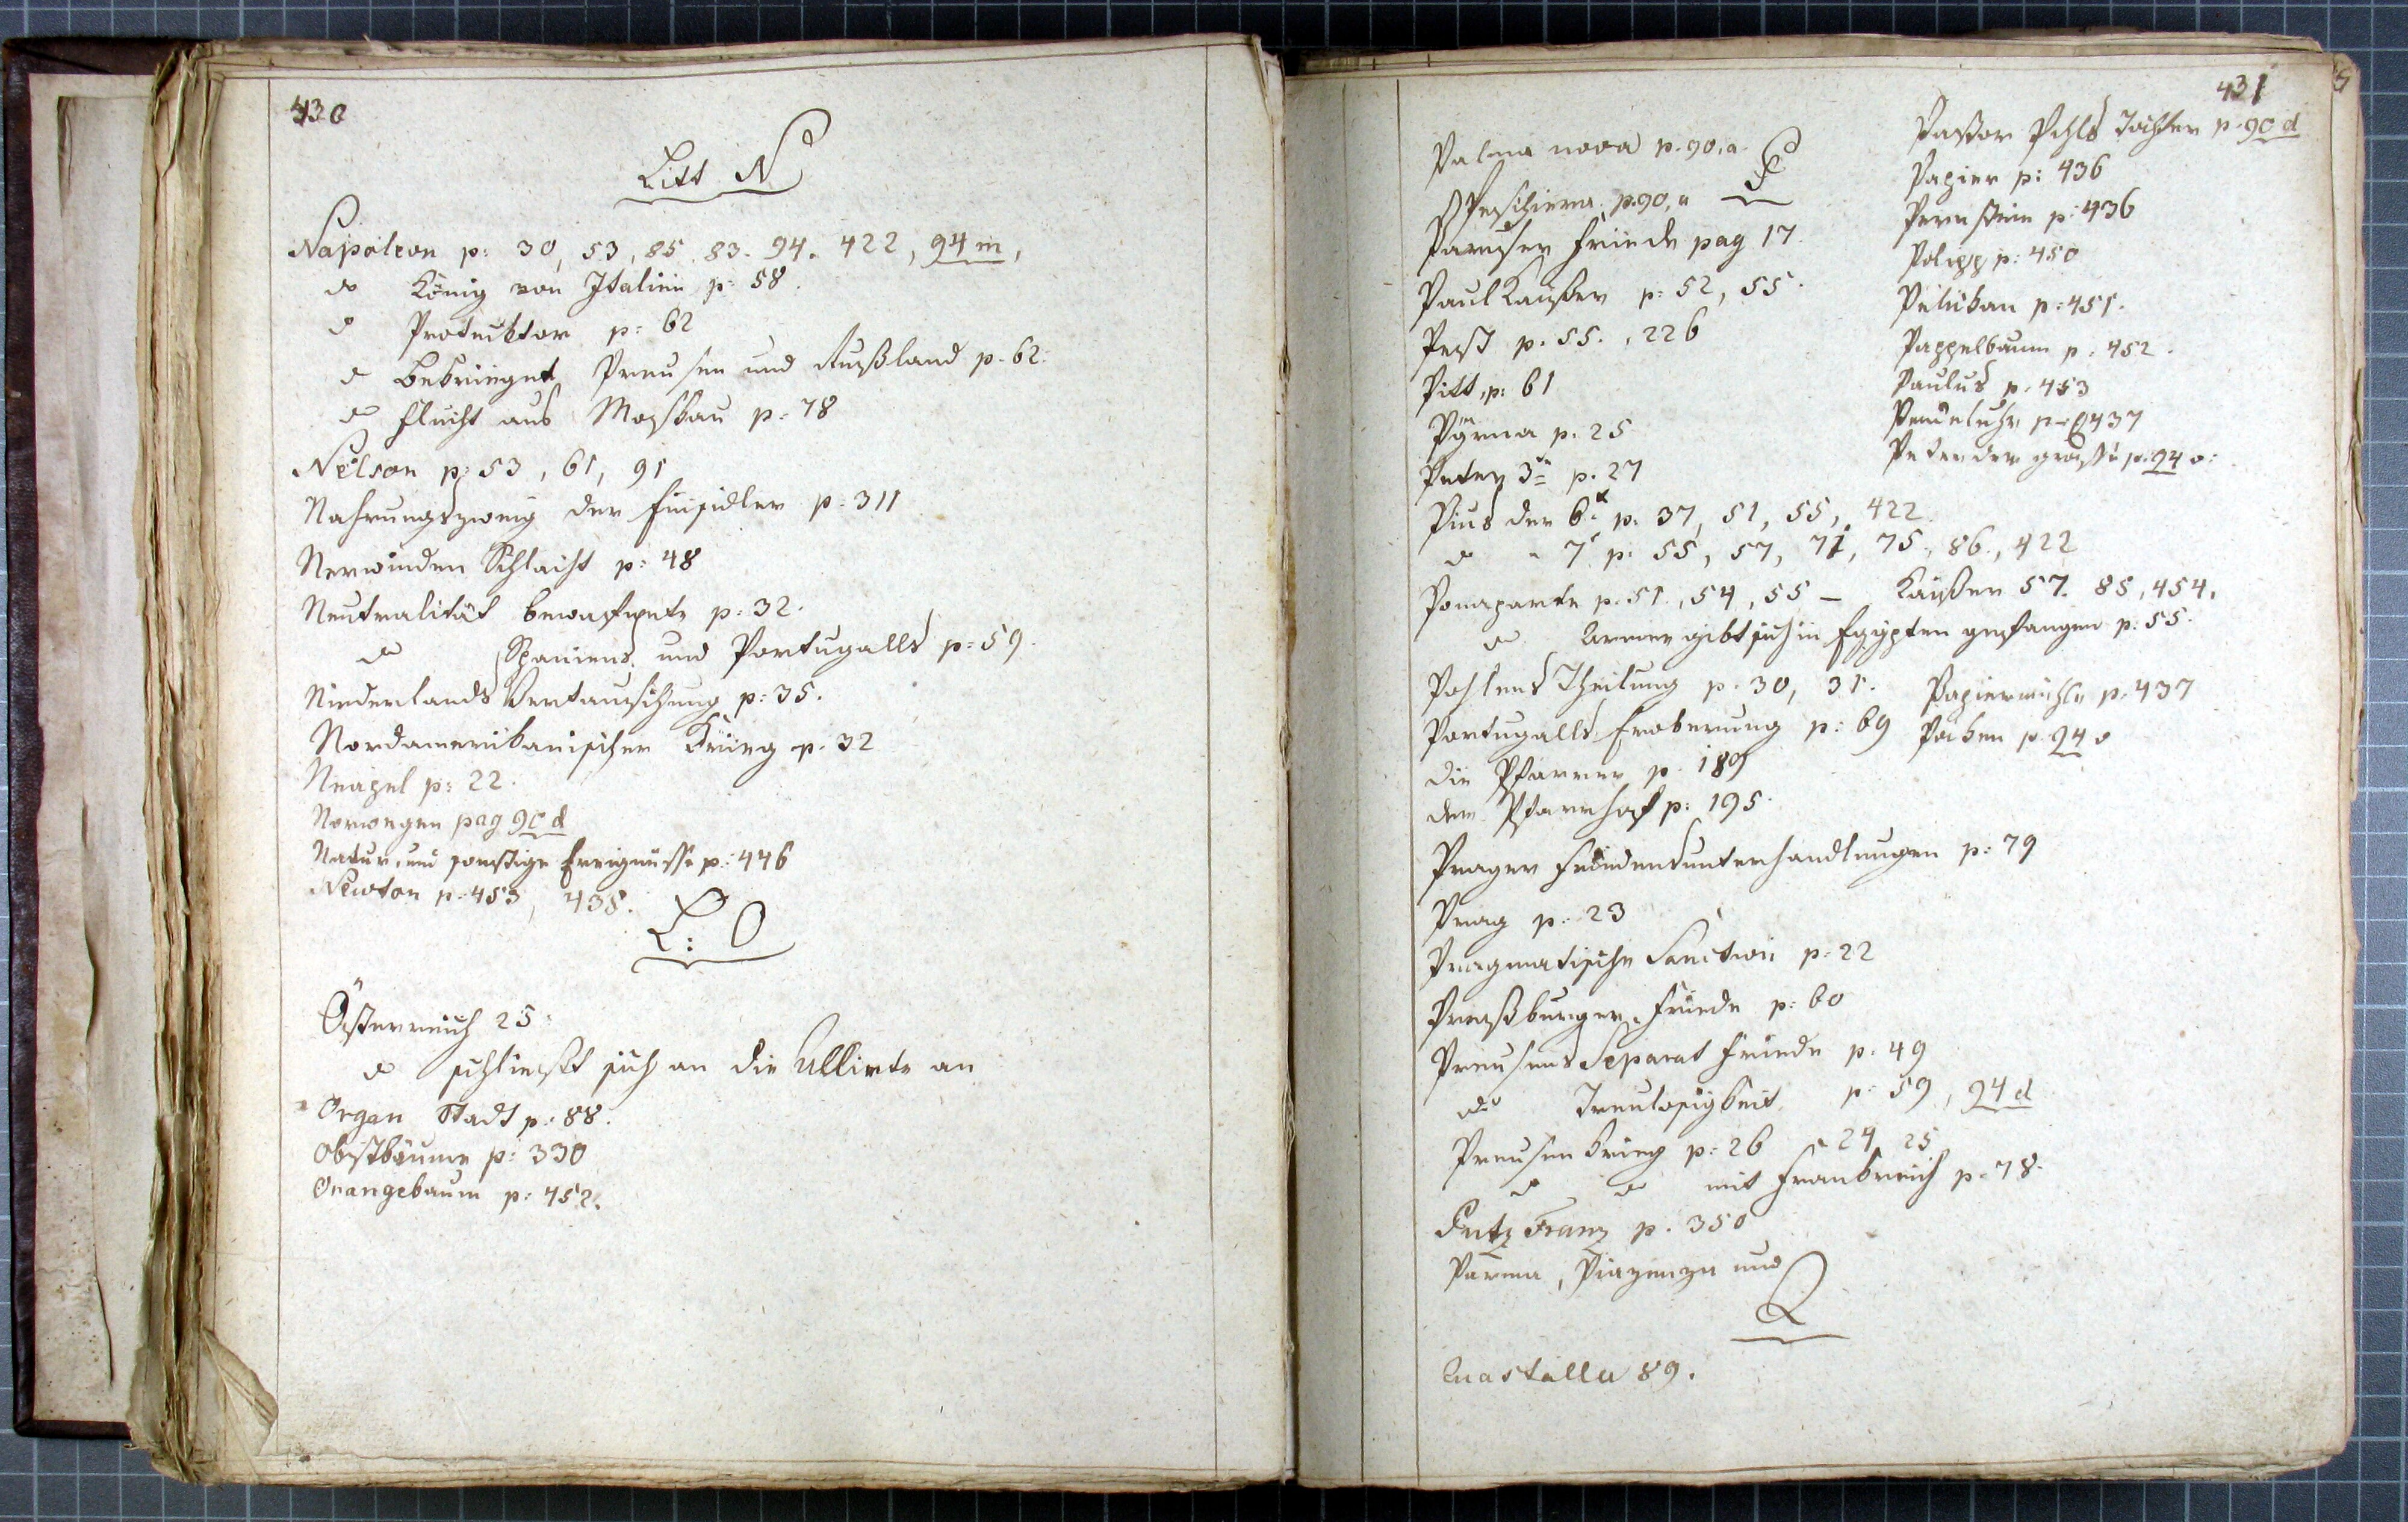 430
Litt N
Napoleon p: 30, 53, 85. 83. 94. 422, 94 m,
do König von Italien p: 58.
do Protecktor p: 62
do bekrieget Preusen und Rußland p. 62.
do Flucht aus Moskau p: 78
Nelson p: 53, 61, 91
Nahrungszweig der Einsidler p: 311
Nerwinden Schlacht p: 48
Neutralität bewafnete p: 32.
do Spaniens und Portugalls p: 59.
Niederlands Vertauschung p: 35.
Nordamerikanischer Krieg p. 32
Neapel p: 22.
Norwegen pag 90 d
Natur und sonstige Ereignisse p: 446
Newton p: 453, 438.
L: O
Österreich 25
do schliesst sich an die Allirte an
Organ Stadt p: 88.
Obstbäume p: 330
Orangebaum p: 452.
431
Palma nova p. 90, a.
P
Peschiera p. 90, a
Pariser Friede pag 17.
Paul Kaiser p: 52, 55.
Pest p. 55., 226
Pitt, p: 61
Pyrna p. 25
Peter 3te p. 27
Pius der 6t p: 37, 51, 55, 422
do " 7t p: 55, 57, 71, 75, 86., 422
Ponaparte p. 51., 54, 55 – Kaiser 57. 85, 454.
do Armee gibt sich in Egypten gefangen p. 55.
Pohlens Theilung p. 30, 31.
Portugalls Eroberung p: 69
die Pfarrer p. 189
der Pfarrhof p: 195.
Prager Friedensunterhandlungen p: 79
Prag p. 23
Pragmatische Sanction p: 22
Presburger Friede p: 60
Preusens Separat Friede p: 49
do Treulosigkeit p: 59, 94 d
Preusen Krieg p: 26 24, 25
do do mit Frankreich p. 78.
Putz Franz p. 350
Parma, Piazenza und
Q
Quastalla 89.
Pastor Pohls Tochter p. 90 d
Papier p: 436
Pernstein p: 436
Polipp p: 450
Pelikan p: 451.
Pappelbaum p. 452.
Paulus p. 453
Pendeluhr p. 437
Peter der grosse p. 94 o:
Papiermühle p. 437
Pocken p. 94 o